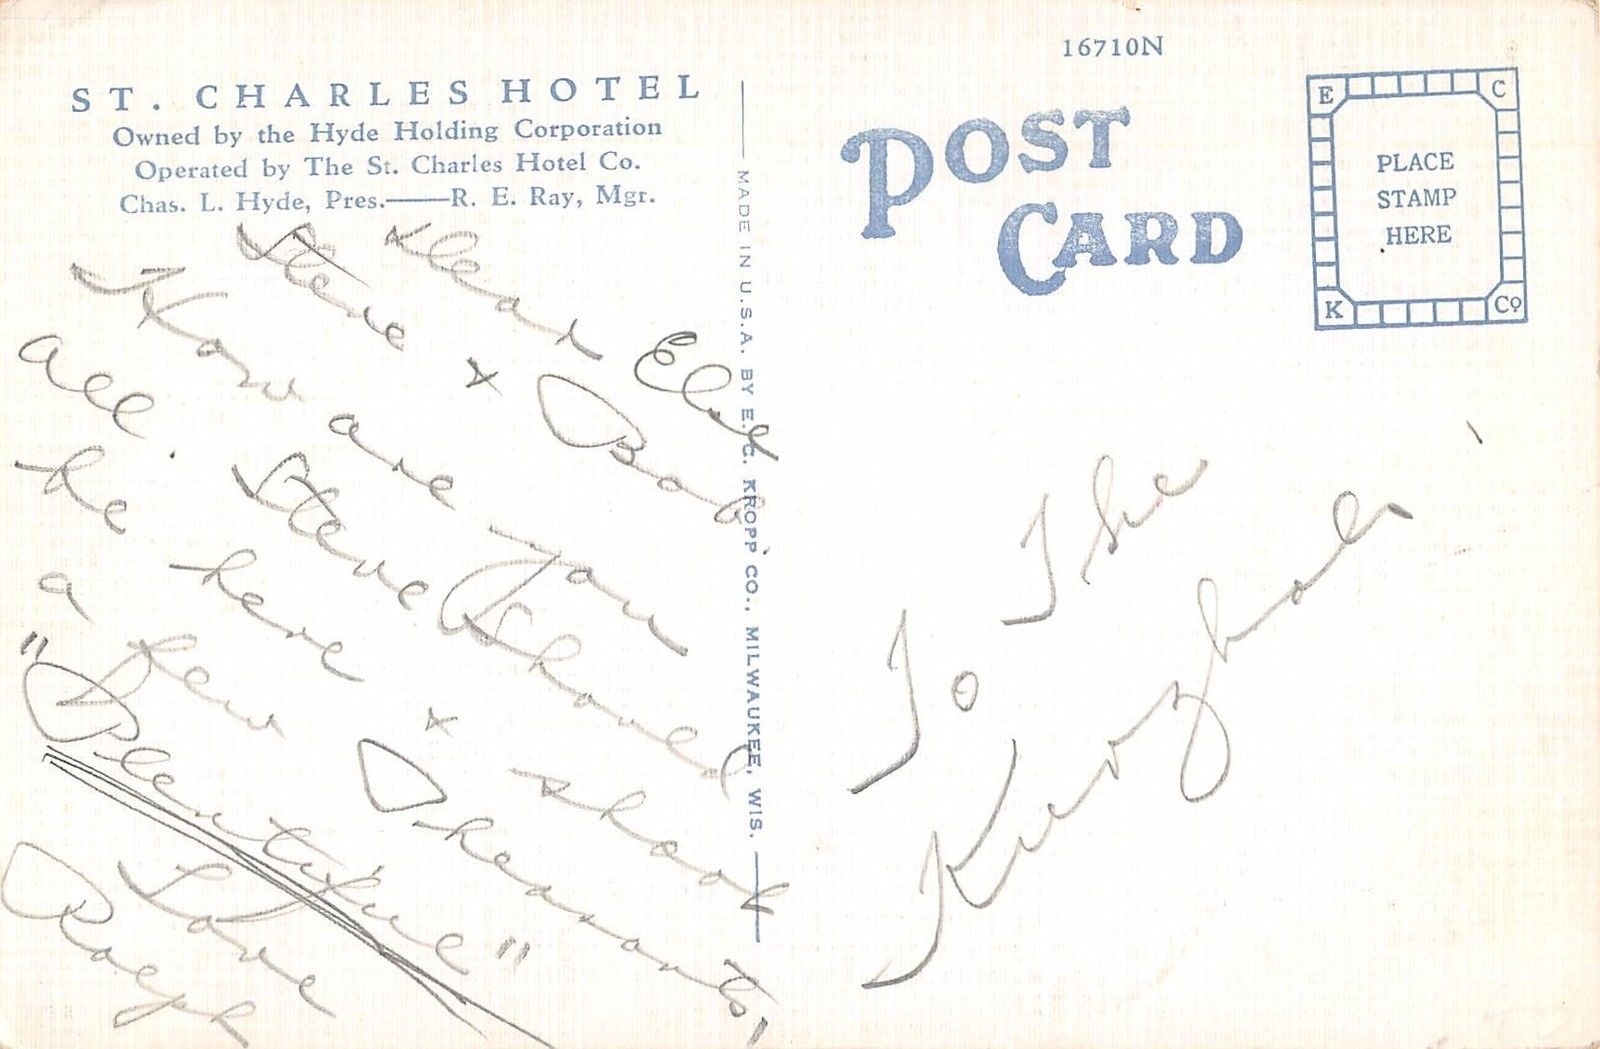 ST. CHARLES HOTEL
Owned by the Hyde Holding Corporation
Operated by The St. Charles Hotel Co.
Chas. L. Hyde, Pres.——R. E. Ray, Mgr.
Dear
Steve & Bob
How are you
all. Steve should
be here & shoot
a few Pheasants,
"Plentiful"
Love
Ralph
MADE IN U.S.A. BY E. C. KROPP CO., MILWAUKEE, WIS.
16710N
POST
CARD
E C
PLACE
STAMP
HERE
K Co
To The